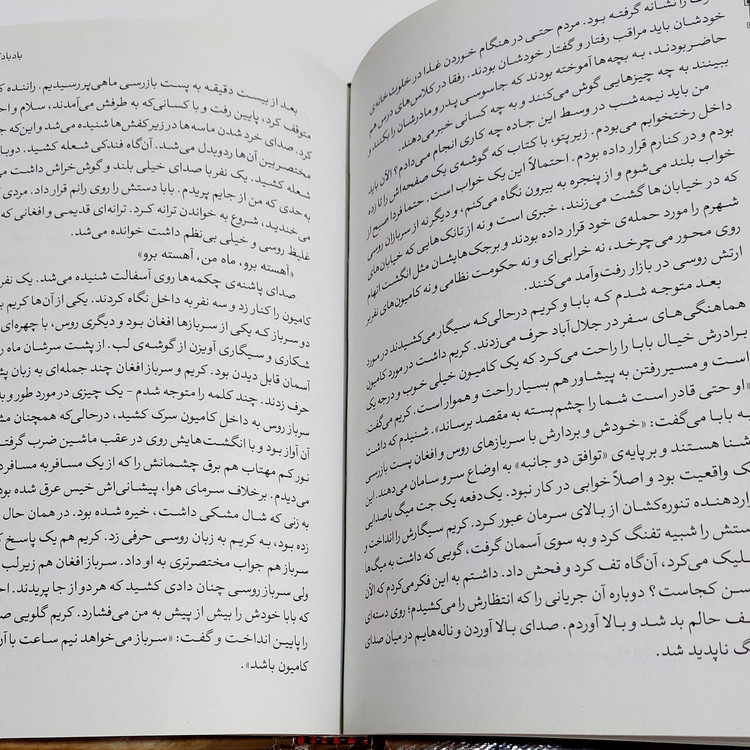 را نشانه گرفته بود. مردم حتی در هنگام خوردن غذا در خلوت خانه‌ی
خودشان باید مراقب رفتار و گفتار خودشان بودند. رفقا در کلاس‌های درس هم
حاضر بودند، به بچه‌ها آموخته بودند که جاسوسی پدر و مادرشان را بکنند و
ببینند به چه چیزهایی گوش می‌کنند و به چه کسانی خبر می‌دهند.
من باید نیمه‌شب در وسط این جاده چه کاری انجام می‌دادم؟ الآن باید
داخل رختخوابم می‌بودم. زیر پتو، با کتاب که گوشه‌ی یک صفحه‌اش را تا زده
بودم و در کنارم قرار داده بودم. احتمالاً این یک خواب است. حتماً فردا صبح از
خواب بلند می‌شوم و از پنجره به بیرون نگاه می‌کنم، و دیگر نه از سربازان روسی
که در خیابان‌ها گشت می‌زنند، خبری است و نه از تانک‌هایی که خیابان‌های
شهرم را مورد حمله‌ی خود قرار داده بودند و برجک‌هایشان مثل انگشت اتهام
روی محور می‌چرخد، نه خرابی‌ای و نه حکومت نظامی و نه کامیون‌های نفربر
ارتش روسی در بازار رفت‌وآمد می‌کنند.
بعد متوجه شدم که بابا و کریم درحالی‌که سیگار می‌کشیدند در مورد
هماهنگی‌های سفر در جلال‌آباد حرف می‌زدند. کریم داشت در مورد کامیون
برادرش خیال بابا را راحت می‌کرد که یک کامیون خیلی خوب و درجه یک
است و مسیر رفتن به پیشاور هم بسیار راحت و هموار است. کریم می‌گفت:
«او حتی قادر است شما را چشم‌بسته به مقصد برساند». شنیدم که داشت
به بابا می‌گفت: «خودش و بردارش با سربازهای روس و افغان پست بازرسی
شنا هستند و برپایه‌ی «توافق دو جانبه» به اوضاع سر و سامان می‌دهند. این
ک واقعیت بود و اصلاً خوابی در کار نبود. یک‌دفعه یک جت میگ با صدایی
دهنده تنوره‌کشان از بالای سرمان عبور کرد. کریم سیگارش را انداخت و
ستش را شبیه تفنگ کرد و به سوی آسمان گرفت، گویی که داشت به میگ‌ها
لیک می‌کرد، آن‌گاه تف کرد و فحش داد. داشتم به این فکر می‌کردم که الآن
سن کجاست؟ دوباره آن جریانی را که انتظارش را می‌کشیدم؛ روی دسته‌ای
ف حالم بد شد و بالا آوردم. صدای بالا آوردن و ناله‌هایم در میان صدای
گ ناپدید شد.
بعد از بیست دقیقه به پست بازرسی ماهی‌پر رسیدیم. راننده
متوقف کرد، پایین رفت و با کسانی‌که به طرفش می‌آمدند، سلام و
کرد. صدای خرد شدن ماسه‌ها در زیر کفش‌ها شنیده می‌شد و این‌که
مختصر بین آن‌ها ردوبدل می‌شد. آن‌گاه فندکی شعله کشید.
شعله کشید. یک نفر با صدای خیلی بلند و گوش‌خراش داشت
به‌حدی که من از جایم پریدم. بابا دستش را روی رانم قرار داد. مردی
می‌خندید، شروع به خواندن ترانه کرد. ترانه‌ای قدیمی و افغانی که
غلیظ روسی و خیلی بی‌نظم داشت خوانده می‌شد.
«آهسته برو، ماه من، آهسته برو»
صدای پاشنه‌ی چکمه‌ها روی آسفالت شنیده می‌شد. یک نفر
کامیون را کنار زد و سه نفر به داخل نگاه کردند. یکی از آن‌ها کریم
دو سرباز که یکی از سربازها افغان بود و دیگری روس، با چهره‌ای
شکاری و سیگاری آویزن از گوشه‌ی لب. از پشت سرشان ماه
آسمان قابل دیدن بود. کریم و سرباز افغان چند جمله‌ای به زبان
حرف زدند. چند کلمه را متوجه شدم - یک چیزی در مورد طور و
سرباز روس به داخل کامیون سرک کشید، درحالی‌که همچنان
آن آواز بود و با انگشت‌هایش روی در عقب ماشین ضرب
نور کم مهتاب هم برق چشمانش را که از یک مسافر به مسافر
می‌دیدم. برخلاف سرمای هوا، پیشانی‌اش خیس عرق شده
به زنی که شال مشکی داشت، خیره شده بود. در همان حال
زده بود، به کریم به زبان روسی حرفی زد. کریم هم یک پاسخ
سرباز هم جواب مختصرتری به او داد. سرباز افغان هم زیر لب
ولی سرباز روسی چنان دادی کشید که هر دو از جا پریدند.
که بابا خودش را بیش از پیش به من می‌فشارد. کریم گلویی
را پایین انداخت و گفت: «سرباز می‌خواهد نیم ساعت با
کامیون باشد».